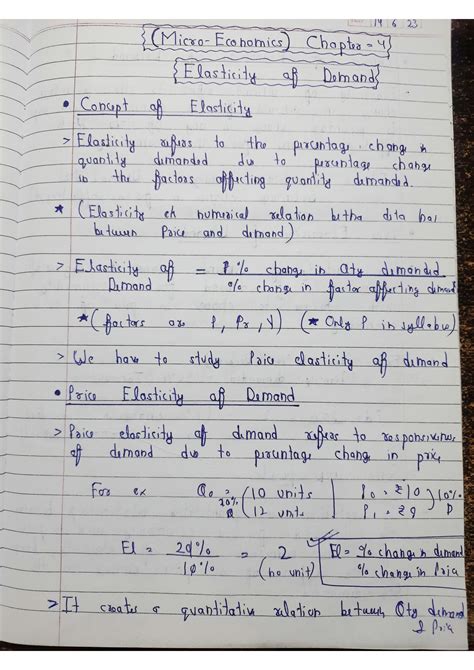 19 6 23
(Micro-Economics) Chapter-4
Elasticity of Demand
• Concept of Elasticity
> Elasticity refers to the percentage change in
quantity demanded due to percentage change
in the factors affecting quantity demanded.
* (Elasticity ek numerical relation betha deta hai
between Price and demand)
> Elasticity of Demand = % change in Qty demanded
% change in factor affecting demand
*(factors are P, Pr, Y) (* Only P in syllabus)
> We have to study Price elasticity of demand
• Price Elasticity of Demand
> Price elasticity of demand refers to responsiveness
of demand due to percentage change in price
For ex Q0 = 10 units P0 = ₹10 10%
20% 12 units P1 = ₹9 D
El = 20% = 2 El = % change in demand
10% (no unit) % change in Price
> It creates a quantitative relation between Qty demand
& Price